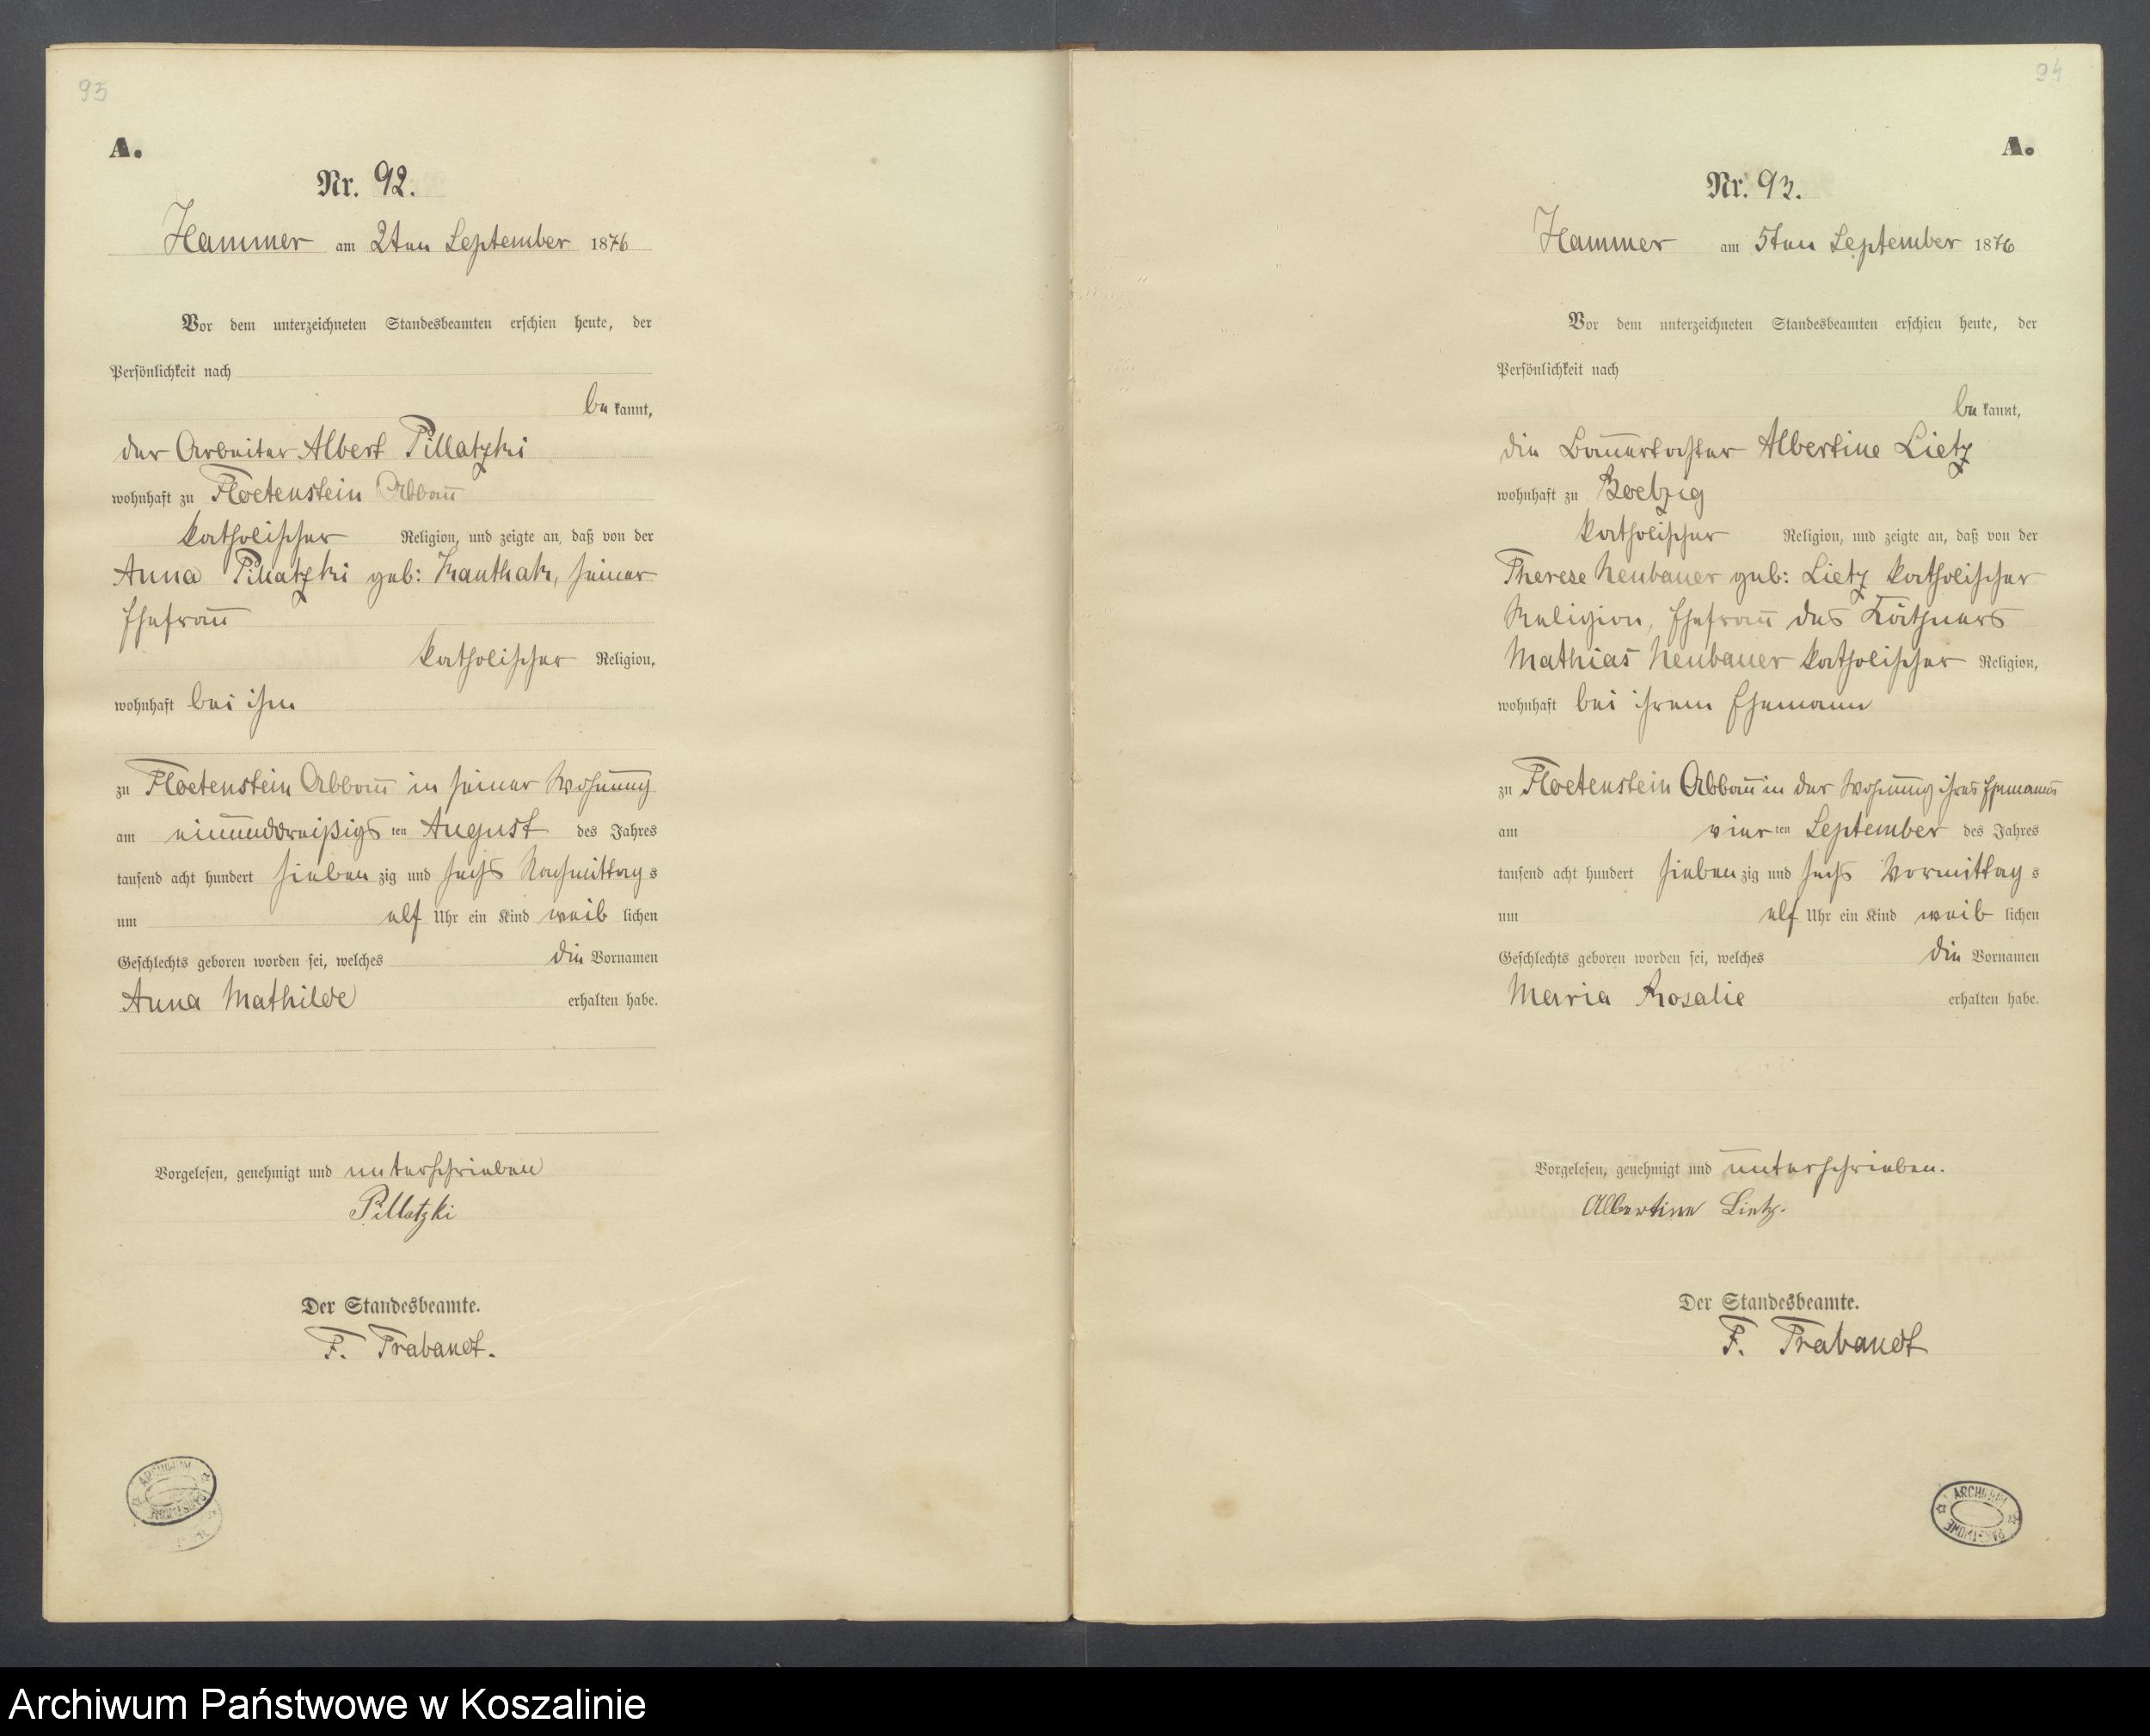 93
A.
Nr. 92.
Hammer am 2ten September 1876
Vor dem unterzeichneten Standesbeamten erschien heute, der
Persönlichkeit nach
bekannt,
der Arbeiter Albert Pillatzki
wohnhaft zu Floetenstein Abbau
katholischer Religion, und zeigte an, daß von der
Anna Pillatzki geb: Kanthak, seiner
Ehefrau
katholischer Religion,
wohnhaft bei ihm
zu Floetenstein Abbau in seiner Wohnung
am einunddreißigsten August des Jahres
tausend acht hundert siebenzig und sechs Nachmittags
um elf Uhr ein Kind weiblichen
Geschlechts geboren worden sei, welches die Vornamen
Anna Mathilde erhalten habe.
Vorgelesen, genehmigt und unterschrieben
Pillatzki
Der Standesbeamte.
F. Trabandt.
ARCHIWUM
PAŃSTWOWE
94
A.
Nr. 93.
Hammer am 5ten September 1876
Vor dem unterzeichneten Standesbeamten erschien heute, der
Persönlichkeit nach
bekannt,
die Bauertochter Albertine Lietz
wohnhaft zu
katholischer Religion, und zeigte an, daß von der
Therese Neubauer geb: Lietz katholischer
Religion, Ehefrau des Käthners
Mathias Neubauer katholischer Religion,
wohnhaft bei ihrem Ehemann
zu Floetenstein Abbau in der Wohnung ihres Ehemanns
am vierten September des Jahres
tausend acht hundert siebenzig und sechs Vormittags
um elf Uhr ein Kind weiblichen
Geschlechts geboren worden sei, welches die Vornamen
Maria Rosalie erhalten habe.
Vorgelesen, genehmigt und unterschrieben.
Albertine Lietz.
Der Standesbeamte.
F. Trabandt
ARCHIWUM
PAŃSTWOWE
Archiwum Państwowe w Koszalinie